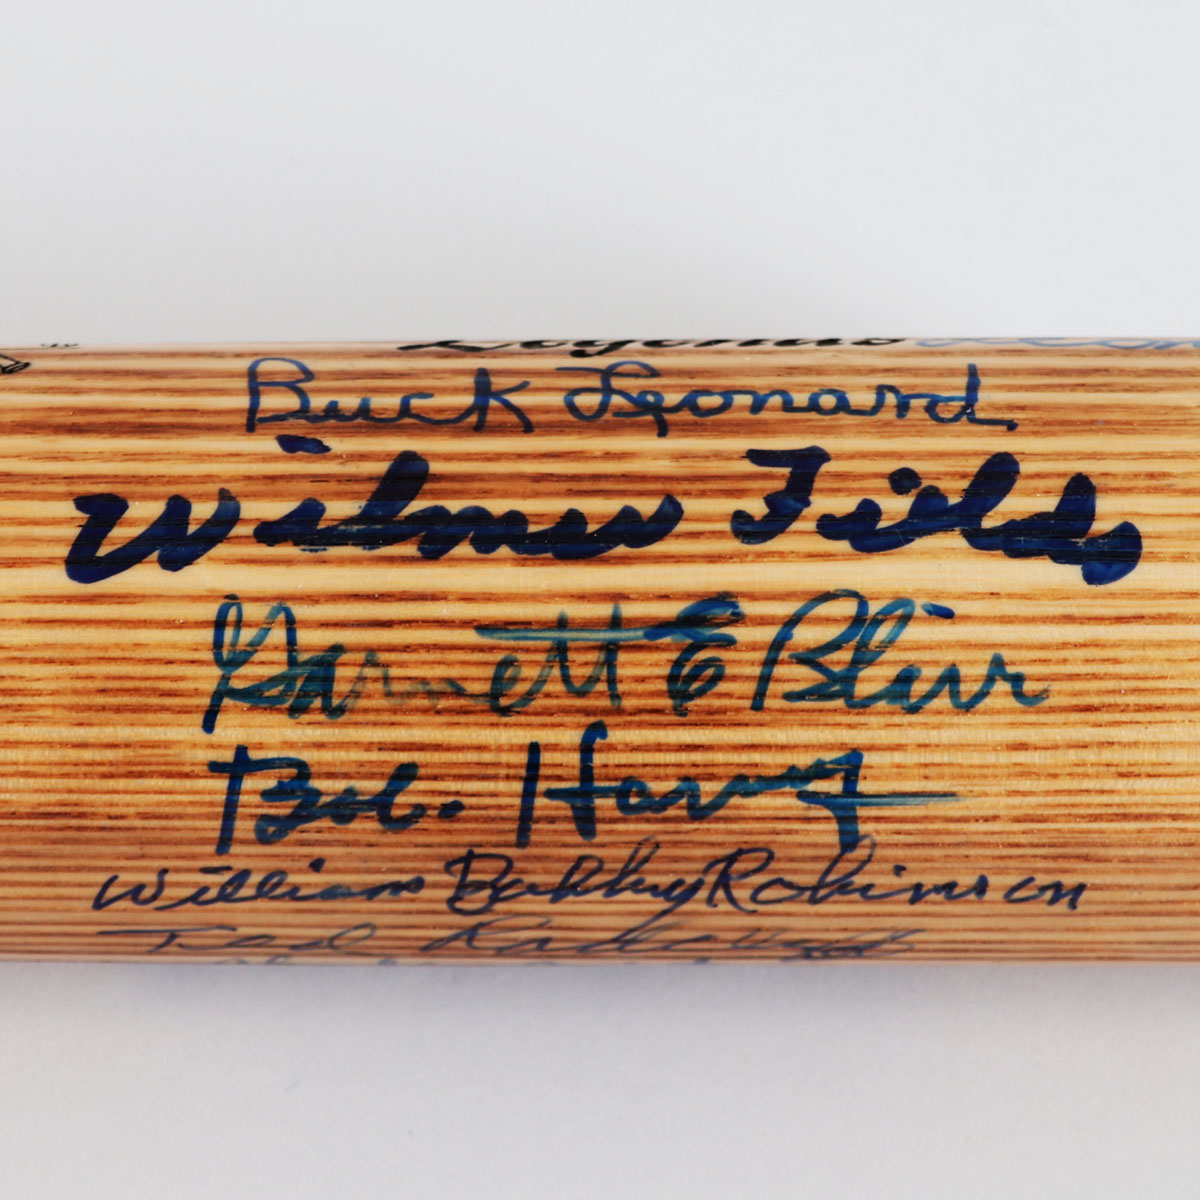 Legends
Buck Leonard
Wilmer Fields
Garnett E Blair
Bob. Harvey
William Bobby Robinson
Ted